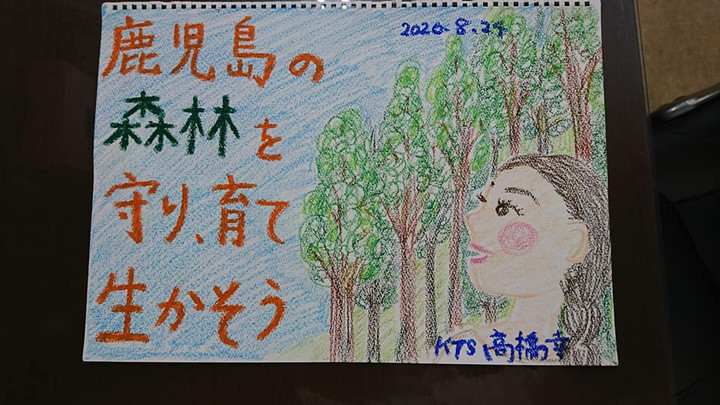 鹿児島の
森林を
守り、育て
生かそう
2020.8.24
KTS 高橋幸